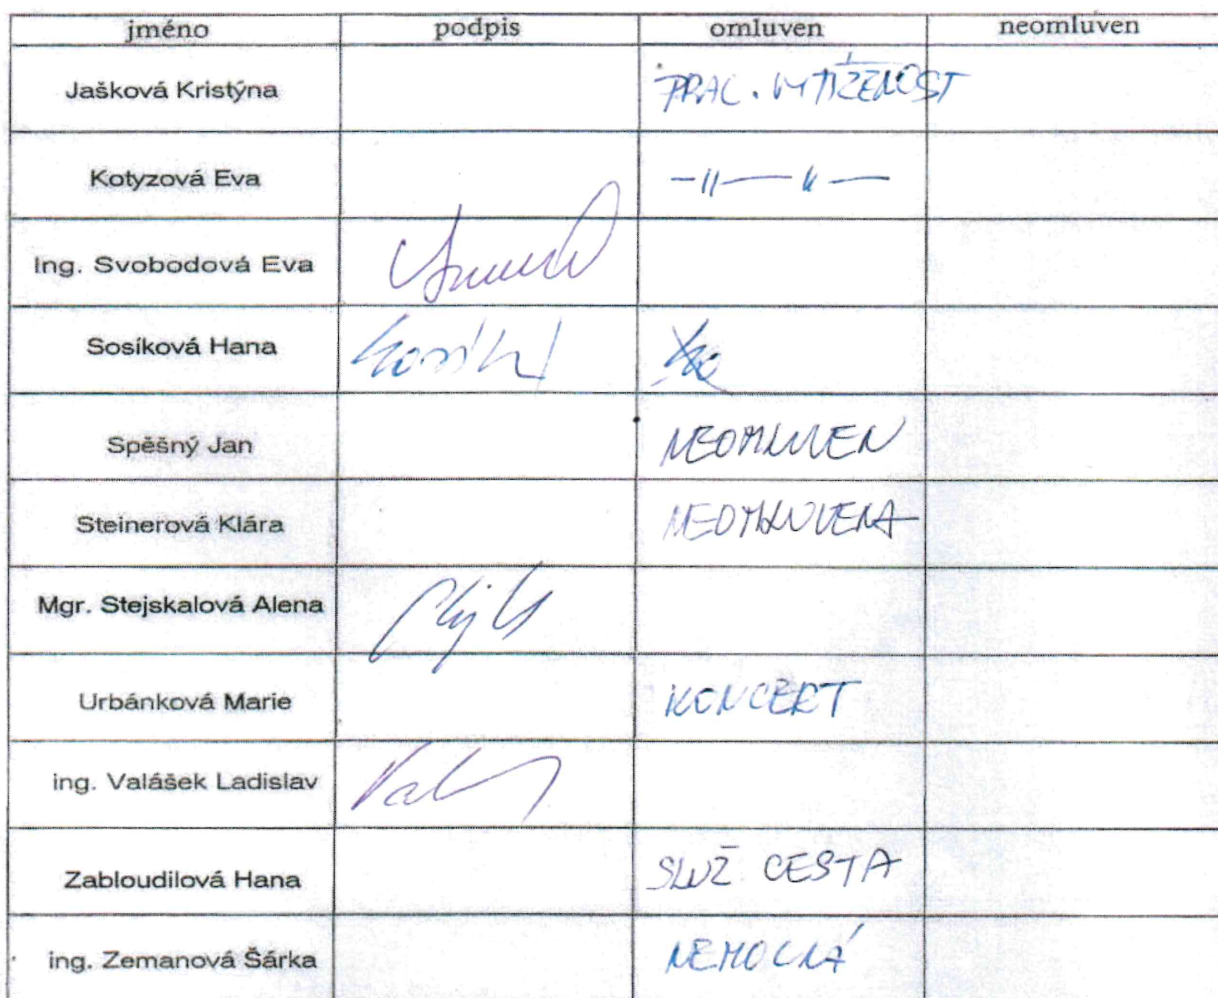 jméno podpis omluven neomluven
Jašková Kristýna PRAC. VYTÍŽENOST
Kotyzová Eva —||——||—
Ing. Svobodová Eva
Sosíková Hana
Spěšný Jan NEOMLUVEN
Steinerová Klára NEOMLUVENA
Mgr. Stejskalová Alena
Urbánková Marie KONCERT
ing. Valášek Ladislav
Zabloudilová Hana SLUŽ CESTA
ing. Zemanová Šárka NEMOCNÁ